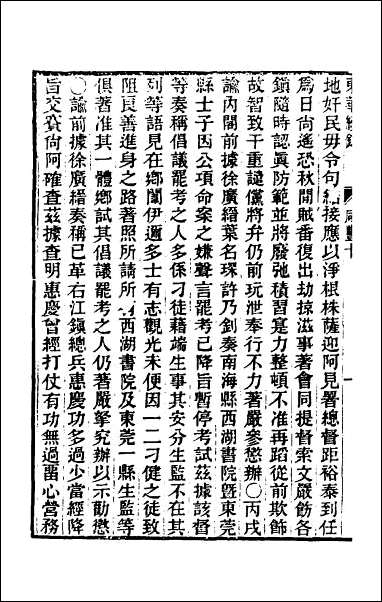 東華續錄 咸豐十
地奸民毋令句結接應以淨根株薩迎阿見署總督距裕泰到任
爲日尙遙恐秋閒賊番復出劫掠滋事著會同提督索文嚴飭各
鎭隨時認眞防範並將廢弛積習寔力整頓不准再蹈從前欺飾
故智致干重譴儻將弁仍前玩泄奉行不力著嚴參懲辦○丙戌
諭內閣前據徐廣縉葉名琛許乃釗奏南海縣西湖書院曁東莞
縣士子因公項命案之嫌聲言罷考已降旨暫停考試茲據該督
等奏稱倡議罷考之人多係刁徒藉端生事其安分生監不在其
列等語見在鄕闈伊邇多士有志觀光未便因一二刁健之徒致
阻良善進身之路著照所請所有西湖書院及東莞一縣生監等
俱著准其一體鄕試其倡議罷考之人仍著嚴拏究辦以示勸懲
○諭前據徐廣縉奏稱已革右江鎭總兵惠慶功多過少當經降
旨交賫尙阿確查茲據查明惠慶曾經打仗有功無過畱心營務